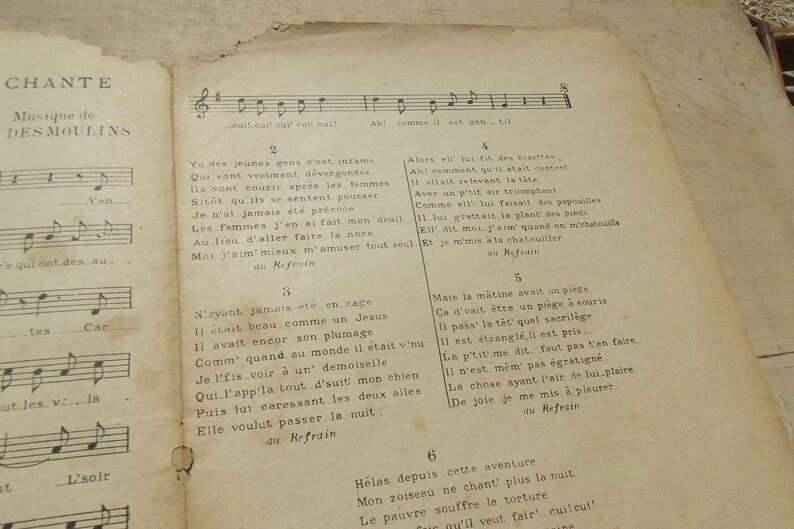 CHANTE
Musique de
DESMOULINS
Yen
r's qui ont des au
tes Car
out les v la
nt L'soir
cui! cui! cui! cui! cui! Ah! comme il est gen til
2
Ya des jeunes gens c'est infâme
Qui sont vraiment dévergondés
Ils vont courir après les femmes
Sitôt qu'ils se sentent pousser
Je n'ai jamais été précoce
Les femmes j'en ai fait mon deuil
Au lieu d'aller faire la noce
Moi j'aim' mieux m'amuser tout seul.
au Refrain
3
N'ayant jamais été en cage
Il était beau comme un Jesus
Il avait encor son plumage
Comm' quand au monde il était v'nu
Je l'fis voir à un' demoiselle
Qui l'app'la tout d'suit' mon chien
Puis lui caressant les deux ailes
Elle voulut passer la nuit.
au Refrain
4
Alors ell' lui fit des bisettes
Ah! comment qu'il était content
Il allait relevant la tête
Avec un p'tit air triomphant
Comme ell' lui faisait des papouilles
Il lui grattait la plant' des pieds
Ell' dit moi j'aim' quand on m'chatouille
Et je m'mis à la chatouiller
au Refrain
5
Mais la mâtine avait un piège
Ça d'vait être un piège à souris
Il pass' la têt' quel sacrilège
Il est étranglé, il est pris;
La p'tit' me dit: faut pas t'en faire
Il n'est mêm' pas égratigné
La chose ayant l'air de lui plaire
De joie je me mis à pleurer.
au Refrain
6
Hélas depuis cette aventure
Mon zoiseau ne chant' plus la nuit
Le pauvre souffre la torture
fois qu'il veut fair' cui! cui!